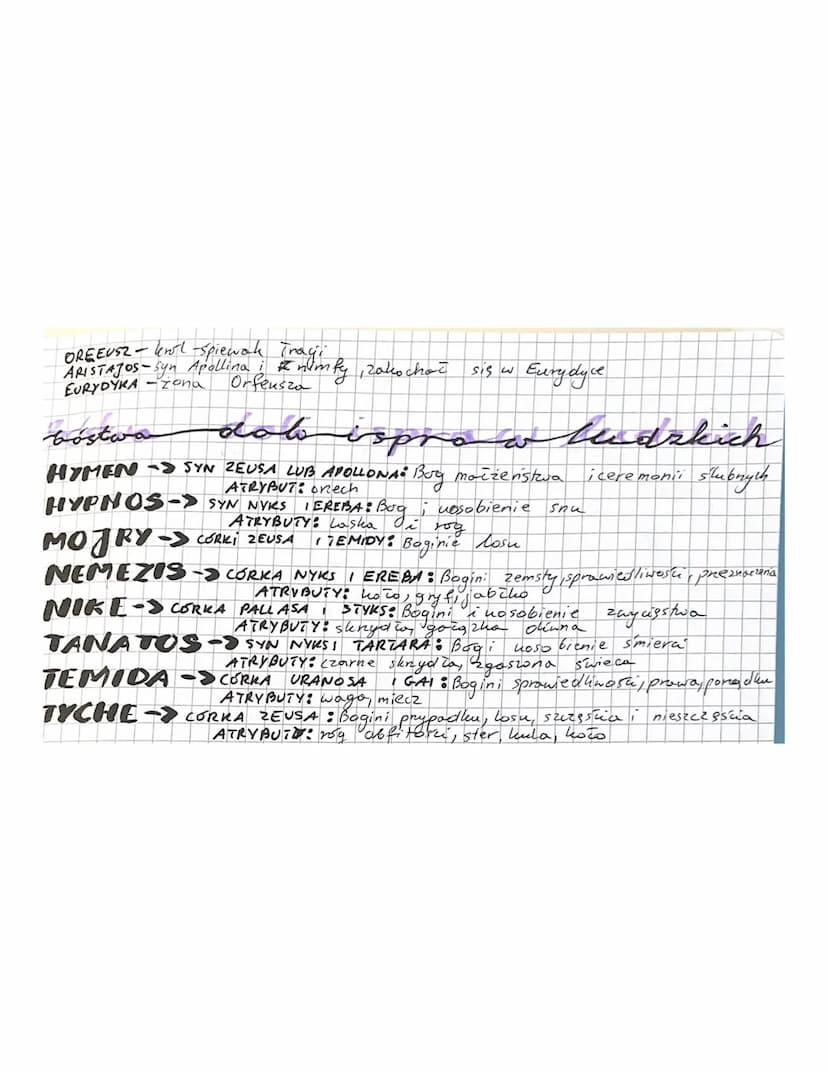 ORFEUSZ - król - śpiewak Tragi
ARISTAJOS - syn Apollina i nimfy, zakochać się w Eurydyce
EURYDYKA - żona Orfeusza
bóstwa doli i spraw ludzkich
HYMEN -> SYN ZEUSA LUB APOLLONA: Bog małżeństwa i ceremonii ślubnych
ATRYBUT: orzech
HYPNOS -> SYN NYKS I EREBA: Bog i uosobienie snu
ATRYBUTY: laska i róg
MOJRY -> CÓRKI ZEUSA I TEMIDY: Boginie losu
NEMEZIS -> CÓRKA NYKS I EREBA: Bogini zemsty, sprawiedliwości, przeznaczenia
ATRYBUTY: koło, gryf, jabłko
NIKE -> CÓRKA PALLASA I STYKS: Bogini i uosobienie zwycięstwa
ATRYBUTY: skrzydła, gałązka oliwna
TANATOS -> SYN NYKS I TARTARA: Bog i uosobienie śmierci
ATRYBUTY: czarne skrzydła, zgaszona świeca
TEMIDA -> CÓRKA URANOSA I GAI: Bogini sprawiedliwości, prawa, porządku
ATRYBUTY: waga, miecz
TYCHE -> CÓRKA ZEUSA: Bogini przypadku, losu, szczęścia i nieszczęścia
ATRYBUTY: róg obfitości, ster, kula, koło